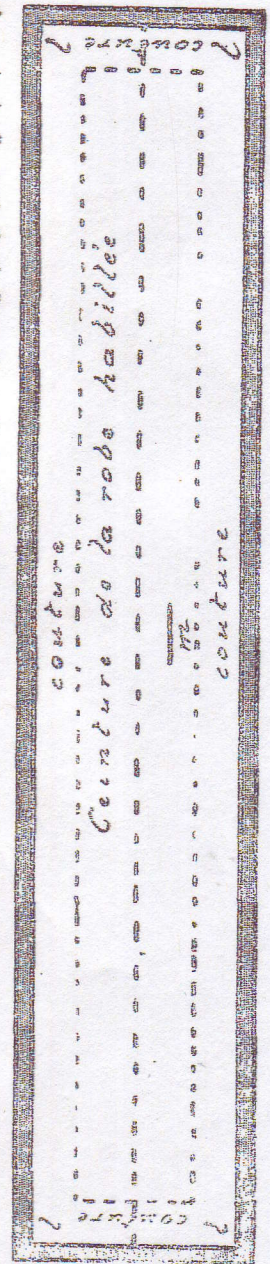 couture
couture
Ceinture de la robe habillée
couture
couture